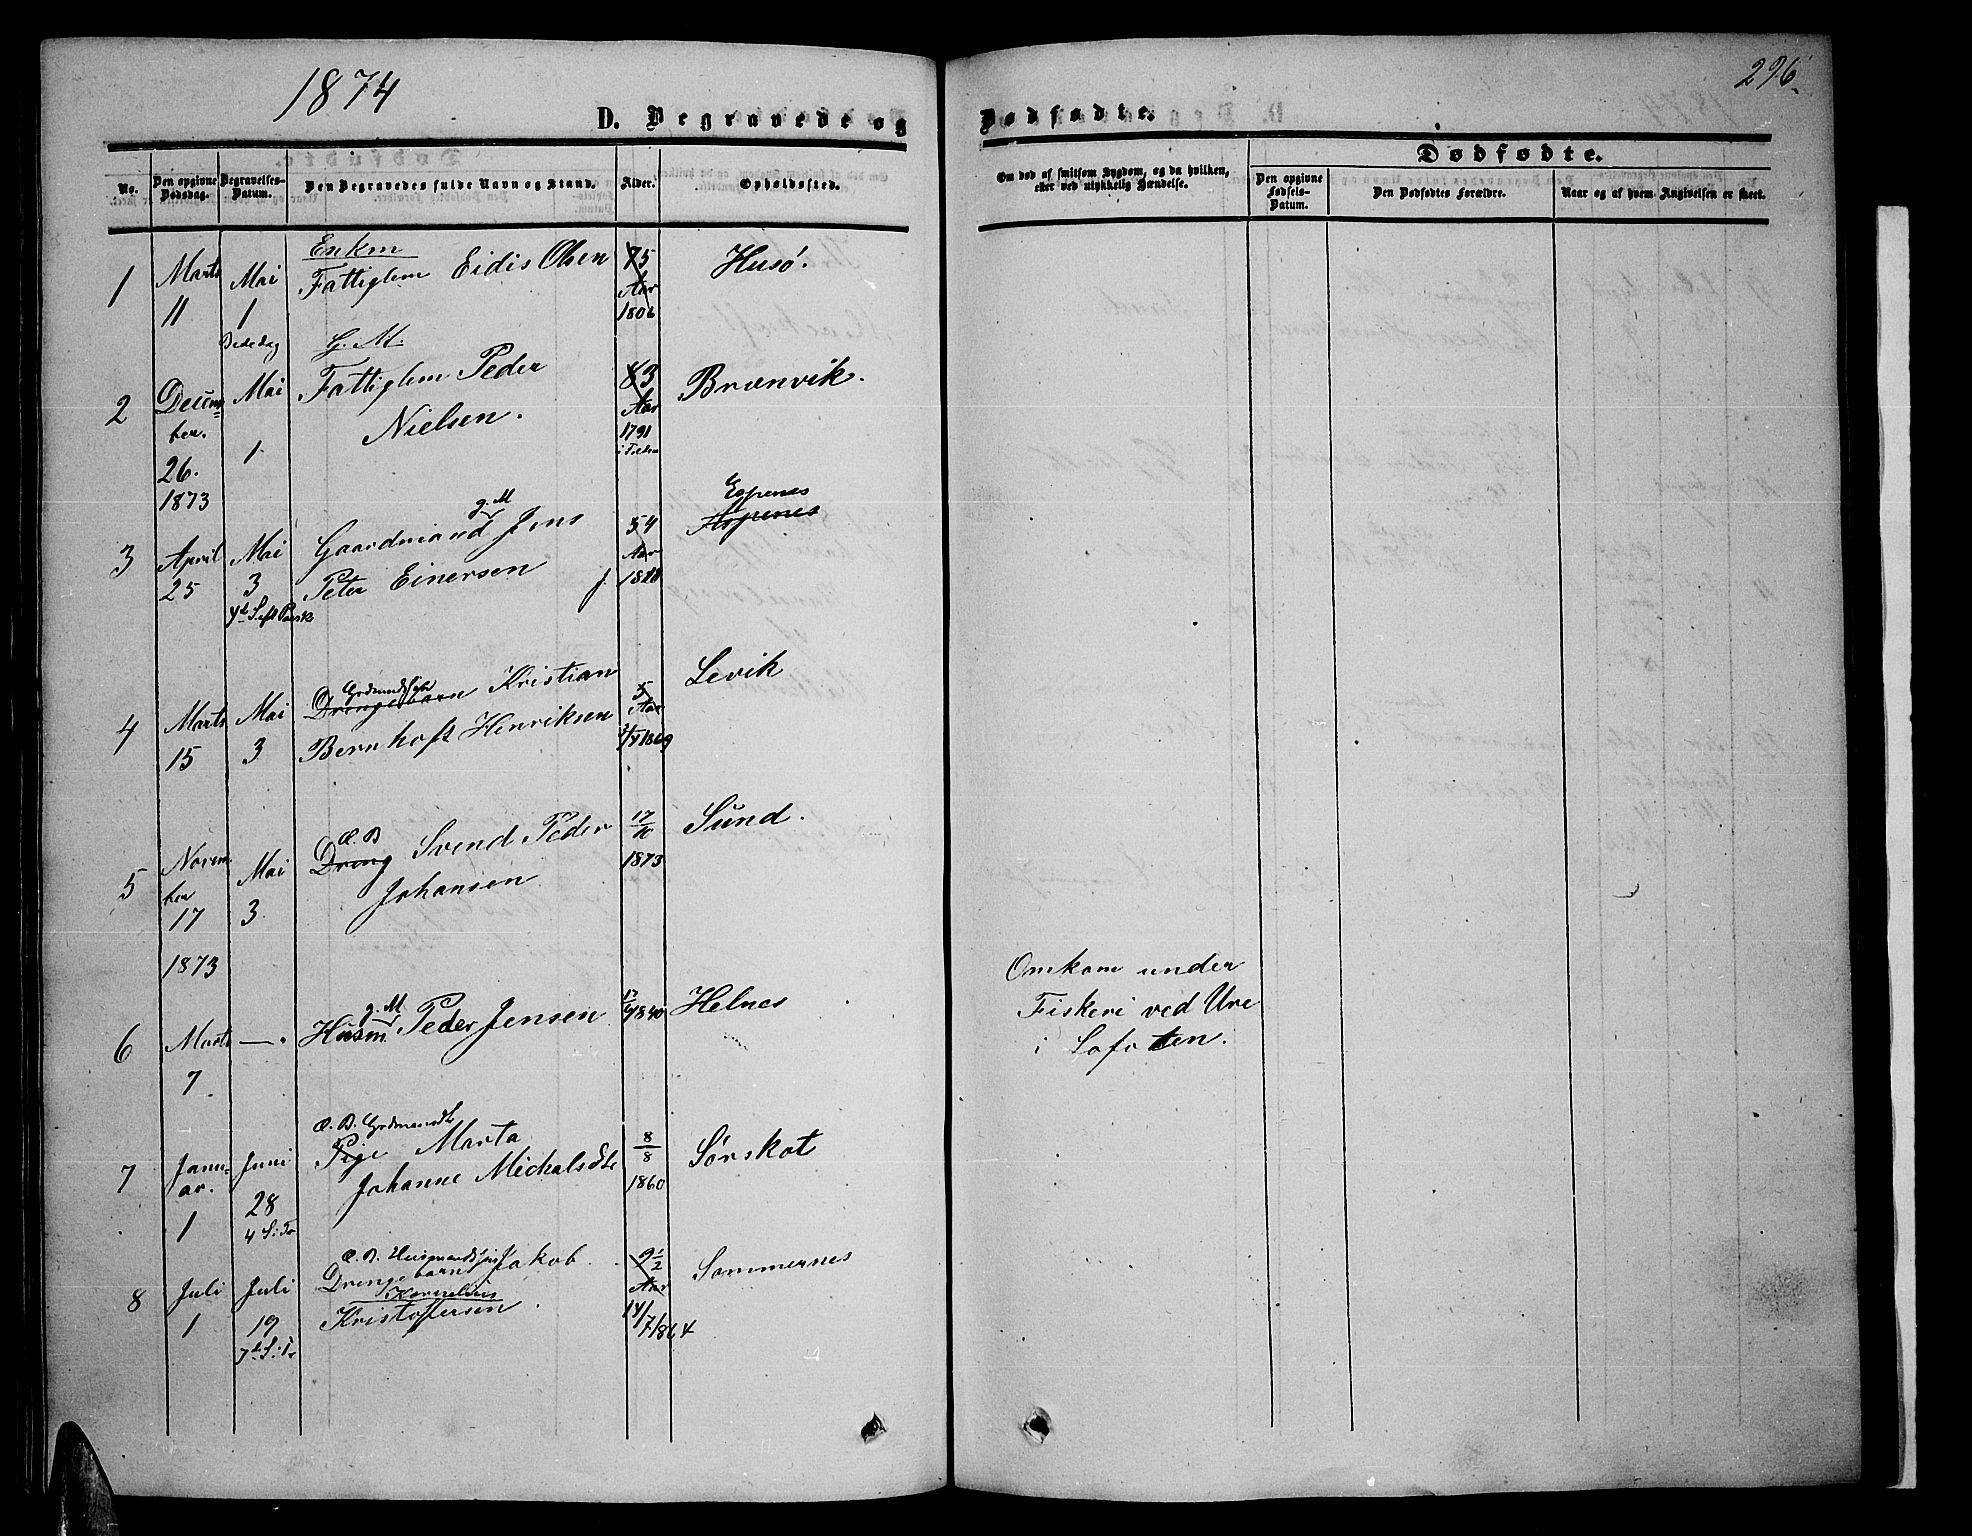 1874
296.
D. Begravede og
Dødfødte.
Dødfødte.
No.
Den opgivne Dødsdag.
Begravelses-Datum.
Den Begravedes fulde Navn og Stand.
Alder.
Opholdssted.
Om død af smitsom Sygdom, og da hvilken, eller ved ulykkelig Hændelse.
Den opgivne Fødsels-Datum.
Den Dødfødtes Forældre.
Naar og af hvem Angivelsen er skeet.
1
Marts
11
Mai
1
Bededag
Enkm
Fattiglem Eidis Olsen
75
Aar
1806
Husø.
2
Decem=
ber.
26.
1873
Mai
1
G. M.
Fattiglem Peder
Nielsen.
83
Aar
1791
Brænvik.
3
April
25
Mai
3
4d S. eft Paask
g. M
Gaardmand Jens
Peter Einersen
54
Aar
Espenes
4
Marts
15
Mai
3
Drengebarn Kristian
Bernhoft Henriksen
5
Aar
1869
Levik
5
Novem
ber
17
1873
Mai
3
Æ. B
Dreng Svend Peder
Johansen
17/10
1873
Sund.
6
Marts
7
—.
g. M
Husm Peder Jensen
1840
Helnes
Omkom under
Fiskeri ved Ure
i Lofoten.
7
Janu=
ar.
1
Juni
28
4 S: Tr
Æ. B. Grdmandsdt
Pige Marta
Johanne Michalsdtr
8/8
1860
Sørskot
8
Juli
1
Juli
19
7d S: Tr
Æ. B. Husmandssøn
Drengebarn Jakob
Kornelius
Kristofersen.
9 1/2
Aar
14/7 1864
Sommernes